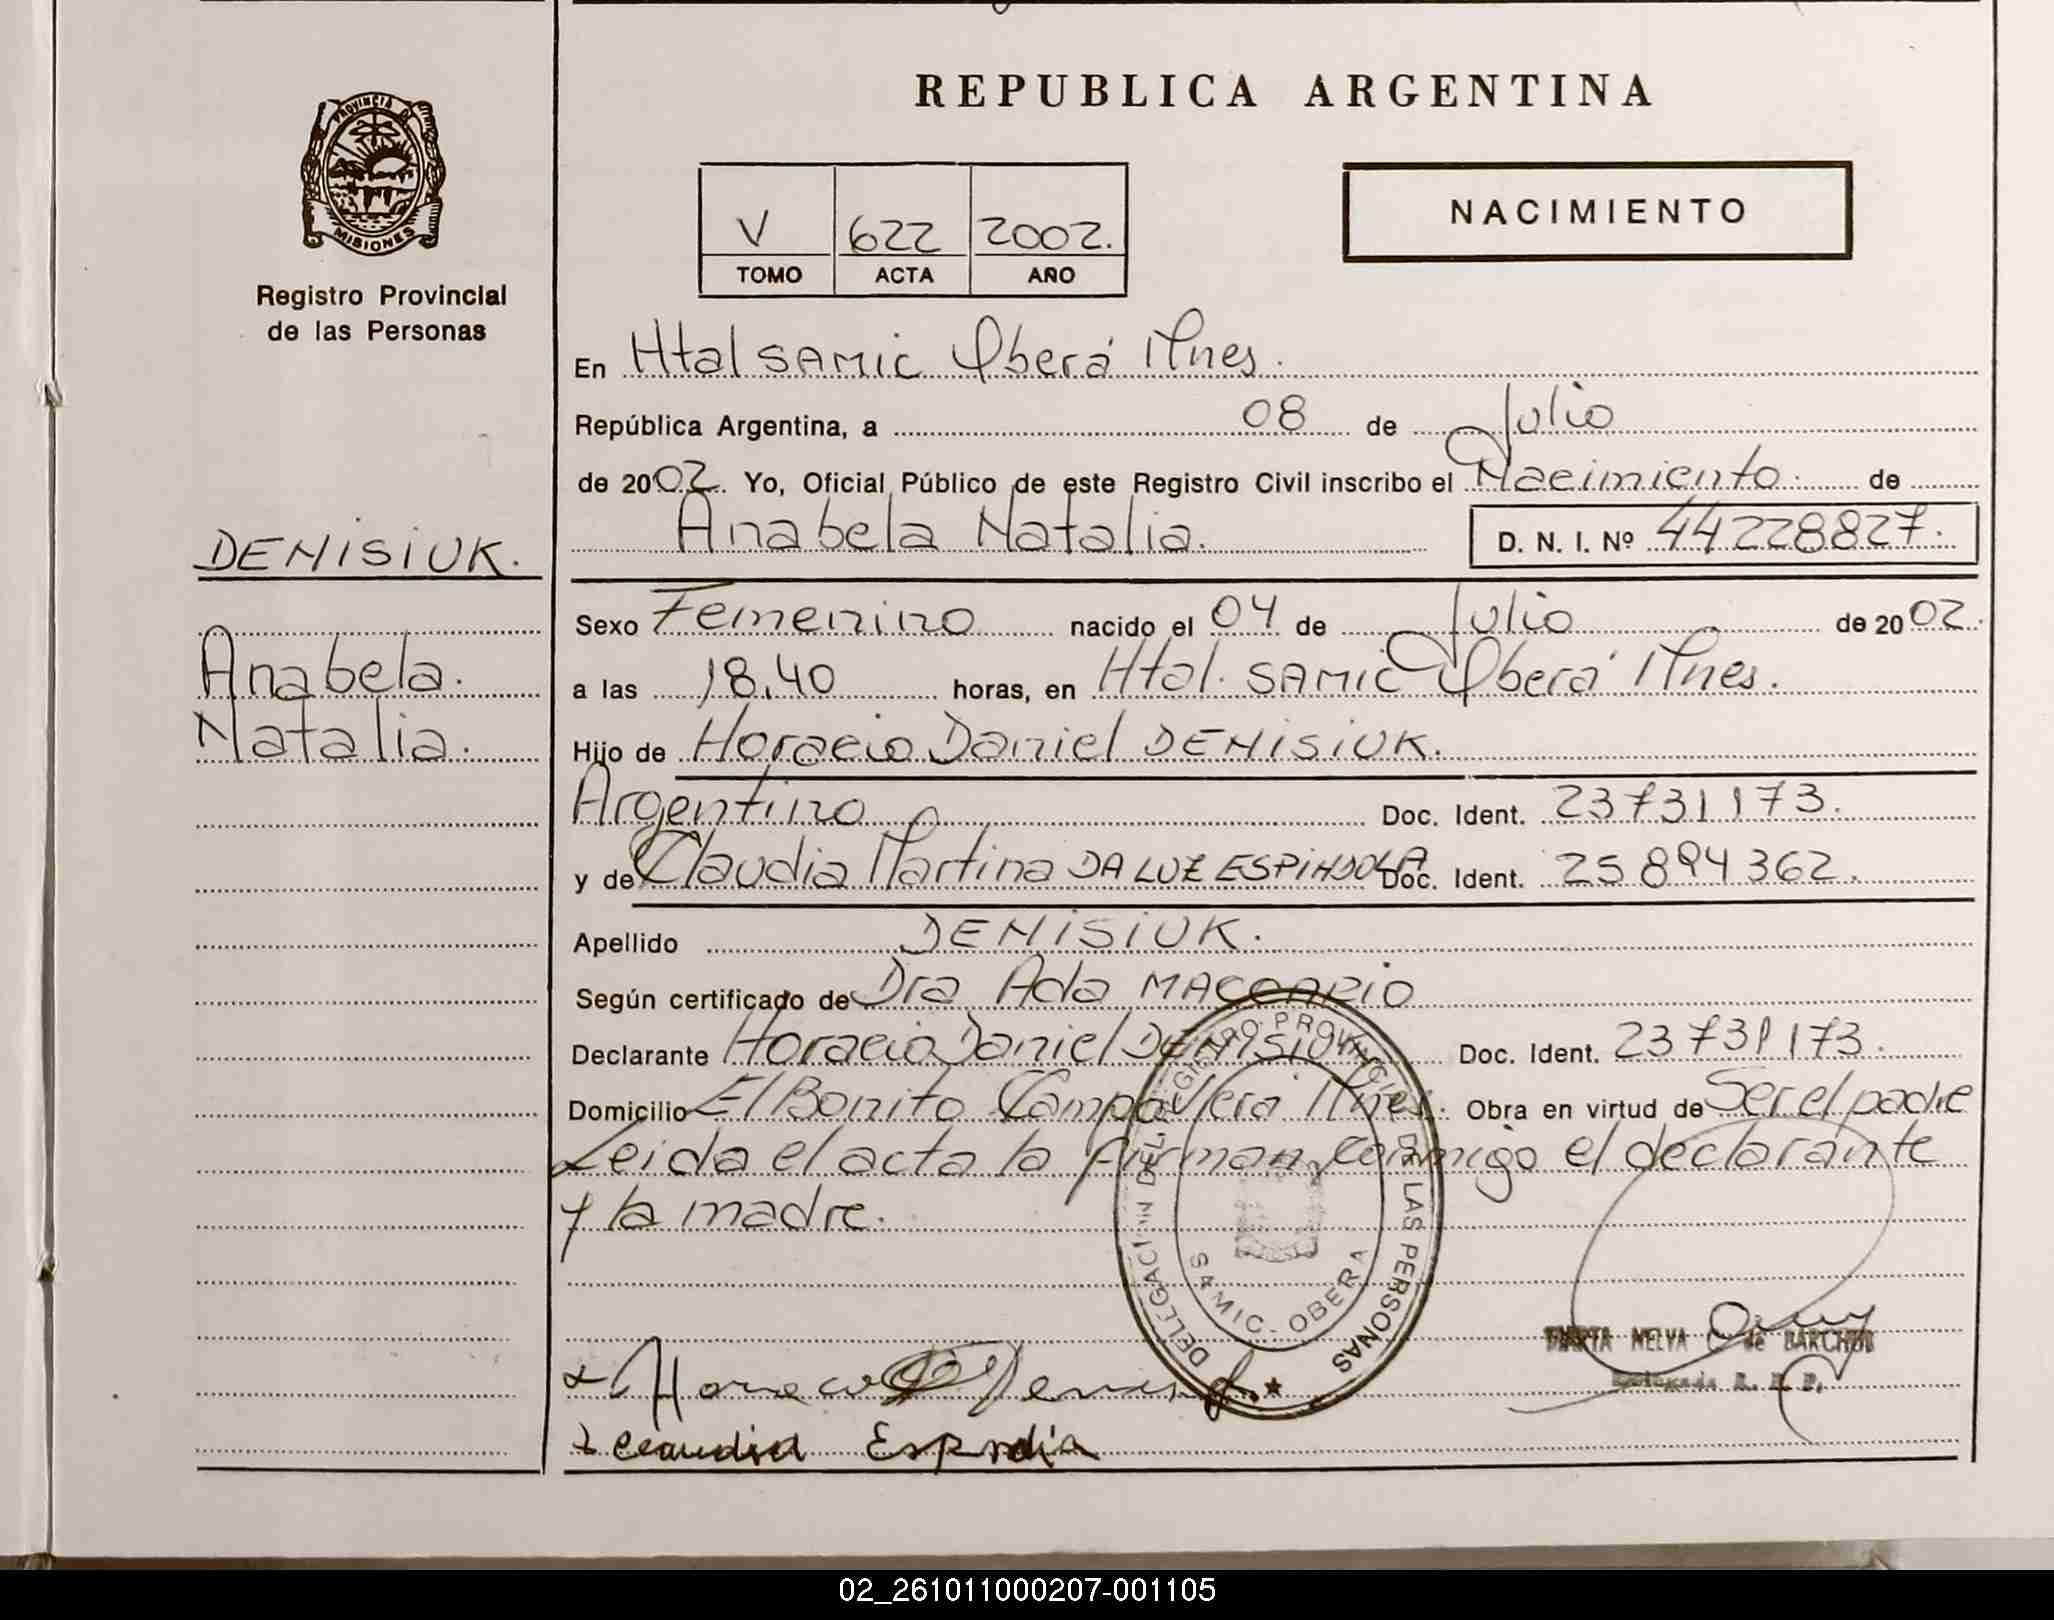 REPUBLICA ARGENTINA
PROVINCIA DE
MISIONES
Registro Provincial
de las Personas
V 622 2002.
TOMO ACTA AÑO
NACIMIENTO
En Htal SAMIC Oberá Mnes.
República Argentina, a 08 de Julio
de 2002. Yo, Oficial Público de este Registro Civil inscribo el Nacimiento. de
Anabela Natalia. D. N. I. Nº 44228827.
DENISIUK.
Anabela.
Natalia.
Sexo Femenino nacido el 04 de Julio de 2002.
a las 18.40 horas, en Htal. SAMIC Oberá Mnes.
Hijo de Horacio Daniel DENISIUK.
Argentino Doc. Ident. 23731173.
y de Claudia Martina DA LUZ ESPINDOLA Doc. Ident. 25894362.
Apellido DENISIUK.
Según certificado de Dra Ada MACCARIO
Declarante Horacio Daniel DENISIUK Doc. Ident. 23731173.
Domicilio El Bonito Campo Viera Mnes. Obra en virtud de Ser el padre
Leida el acta la firman conmigo el declarante
y la madre.
DELEGACION DEL REGISTRO PROVINCIAL DE LAS PERSONAS
SAMIC - OBERA
MARTA NELVA C. de BARCHUK
R. P. P.
Horacio Denisiuk
Claudia
02_261011000207-001105